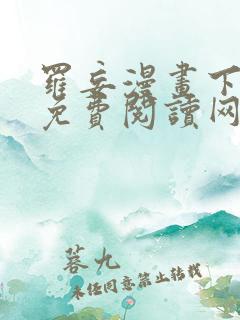 羅妄漫畫下
免費閱讀网
菩九
未经同意禁止转载